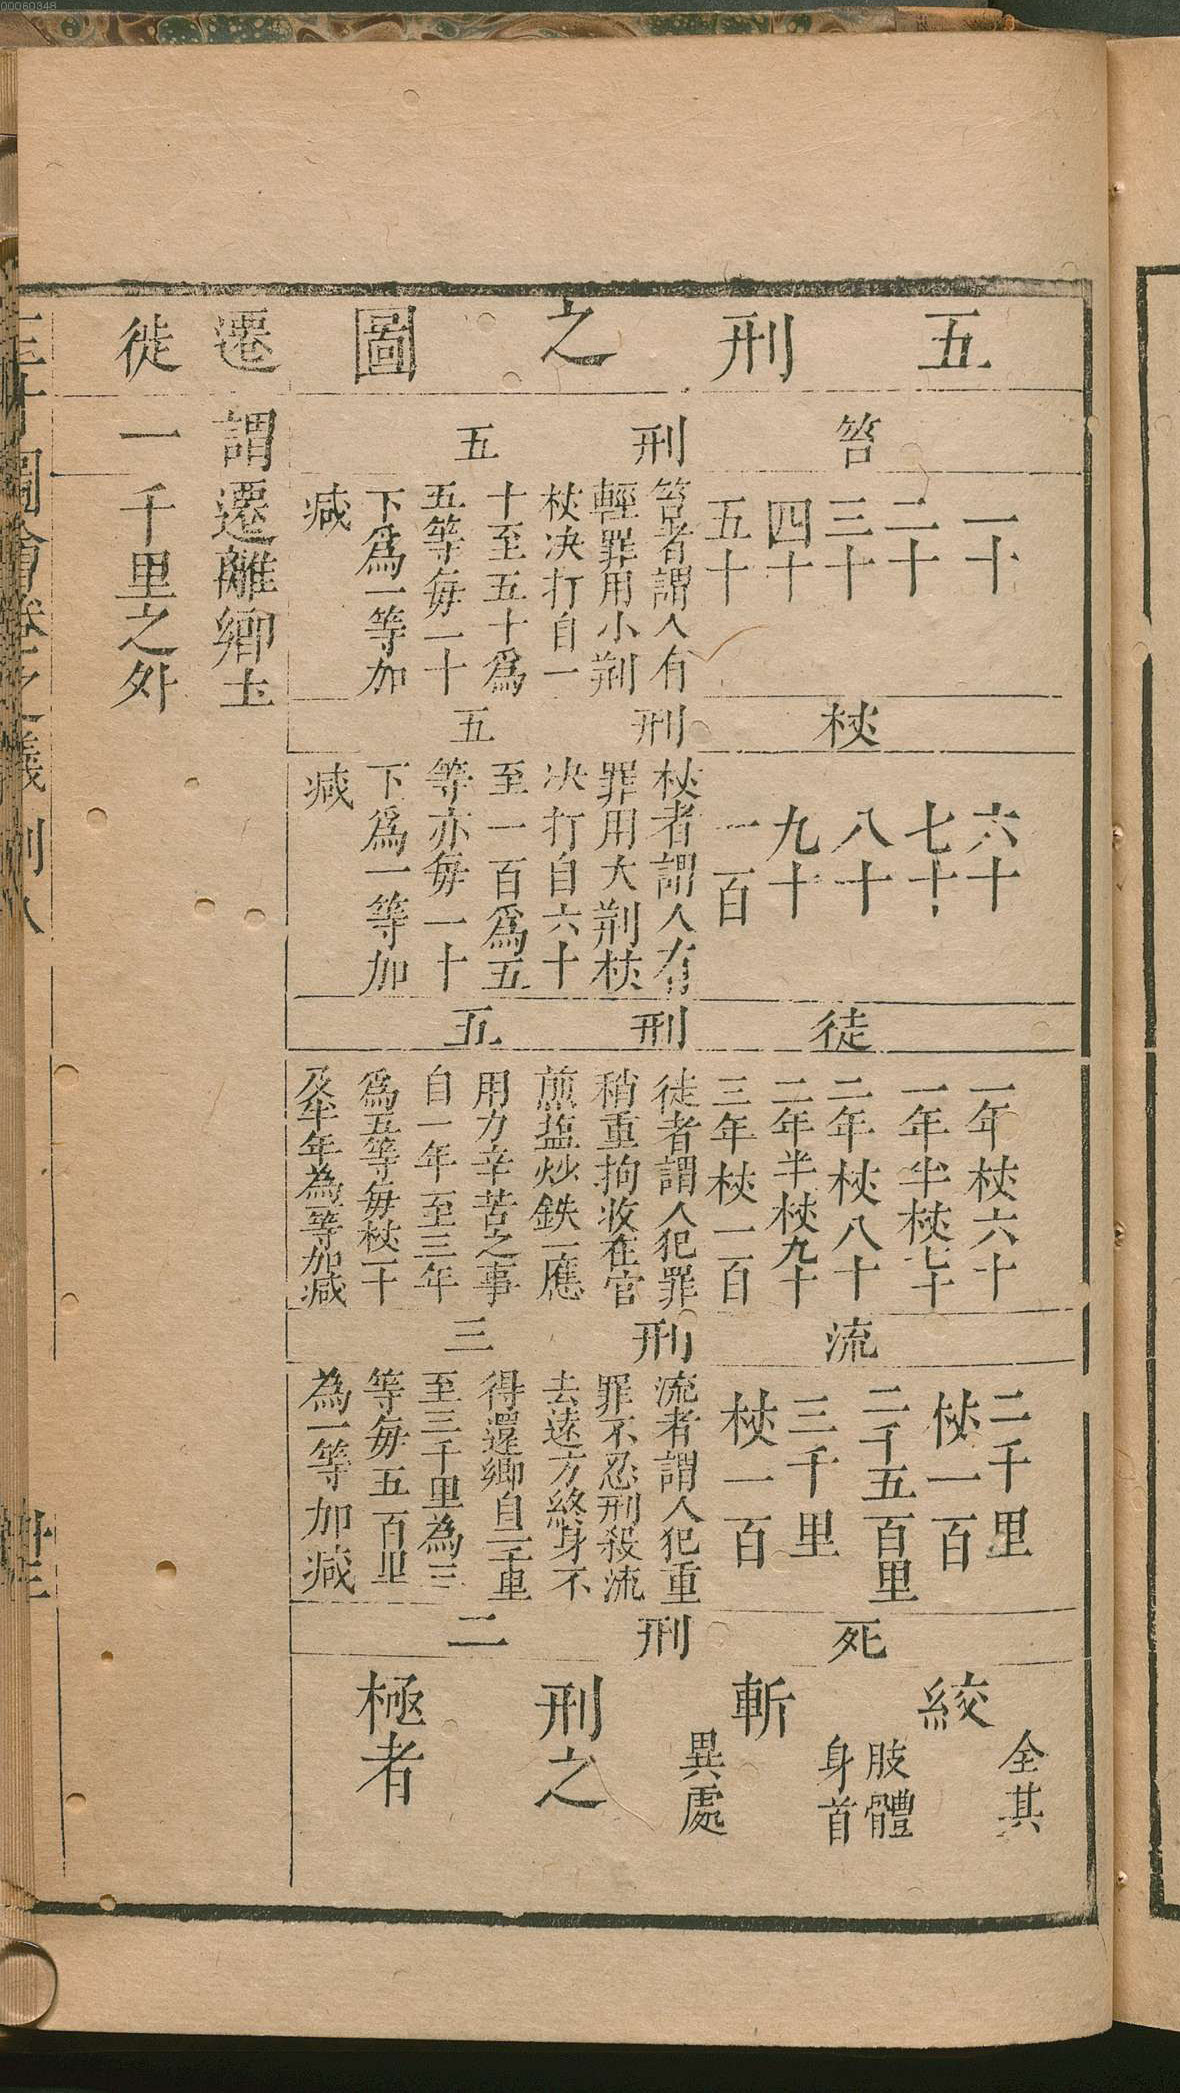 00060348
五刑之圖
笞刑五
一十
二十
三十
四十
五十
笞者謂人有
輕罪用小荆
杖决打自一
十至五十爲
五等每一十
下爲一等加
减
杖刑五
六十
七十
八十
九十
一百
杖者謂人有
罪用大荆杖
决打自六十
至一百爲五
等亦每一十
下爲一等加
减
徒刑五
一年杖六十
一年半杖七十
二年杖八十
二年半杖九十
三年杖一百
徒者謂人犯罪
稍重拘收在官
煎塩炒鉄一應
用力辛苦之事
自一年至三年
爲五等每杖一十
及半年為一等加减
流刑三
二千里
杖一百
二千五百里
三千里
杖一百
流者謂人犯重
罪不忍刑殺流
去遠方終身不
得還鄉自二千里
至三千里為三
等每五百里
為一等加减
死刑二
絞
全其
肢體
斬
身首
異處
刑之
極者
遷徙
謂遷離鄉土
一千里之外